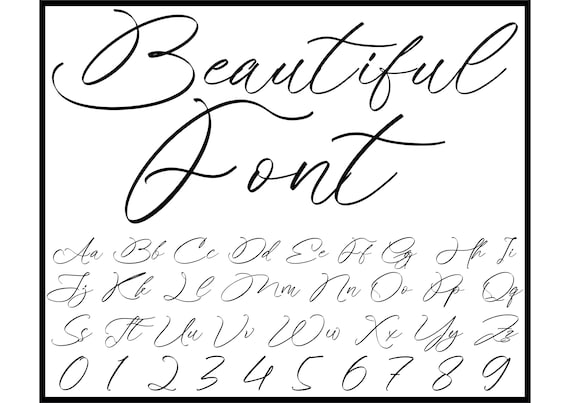 Beautiful
Font
Aa Bb Cc Dd Ee Ff Gg Hh Ii
Jj Kk Ll Mm Nn Oo Pp Qq
Ss Tt Uu Vv Ww Xx Yy Zz
0 1 2 3 4 5 6 7 8 9